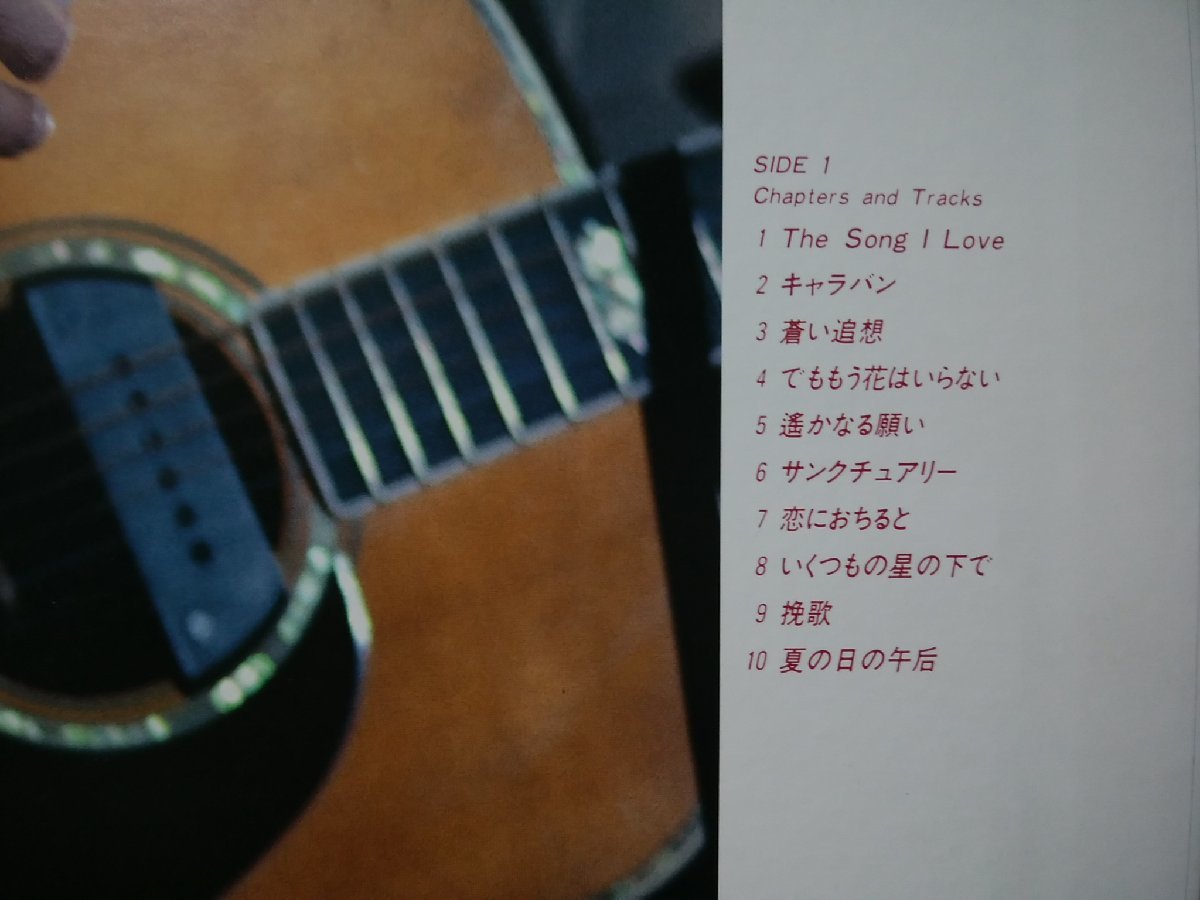 SIDE 1
Chapters and Tracks
1 The Song I Love
2 キャラバン
3 蒼い追想
4 でももう花はいらない
5 遙かなる願い
6 サンクチュアリー
7 恋におちると
8 いくつもの星の下で
9 挽歌
10 夏の日の午后